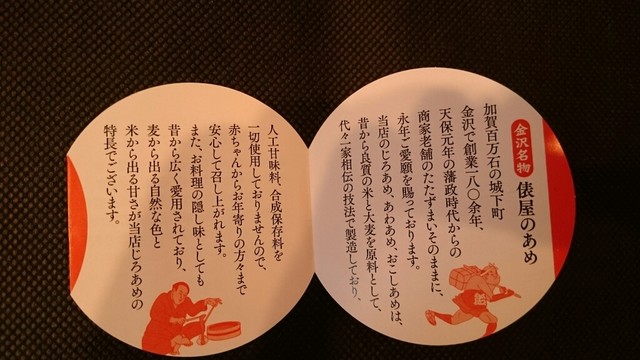 金沢名物
俵屋のあめ
加賀百万石の城下町
金沢で創業一八〇余年、
天保元年の藩政時代からの
商家老舗のたたずまいそのままに、
永年ご愛顧を賜っております。
当店のじろあめ、あわあめ、おこしあめは、
昔から良質の米と大麦を原料として、
代々一家相伝の技法で製造しており、
人工甘味料、合成保存料を
一切使用しておりませんので、
赤ちゃんからお年寄りの方々まで
安心して召し上がれます。
また、お料理の隠し味としても
昔から広く愛用されており、
麦から出る自然な色と
米から出る甘さが当店じろあめの
特長でございます。